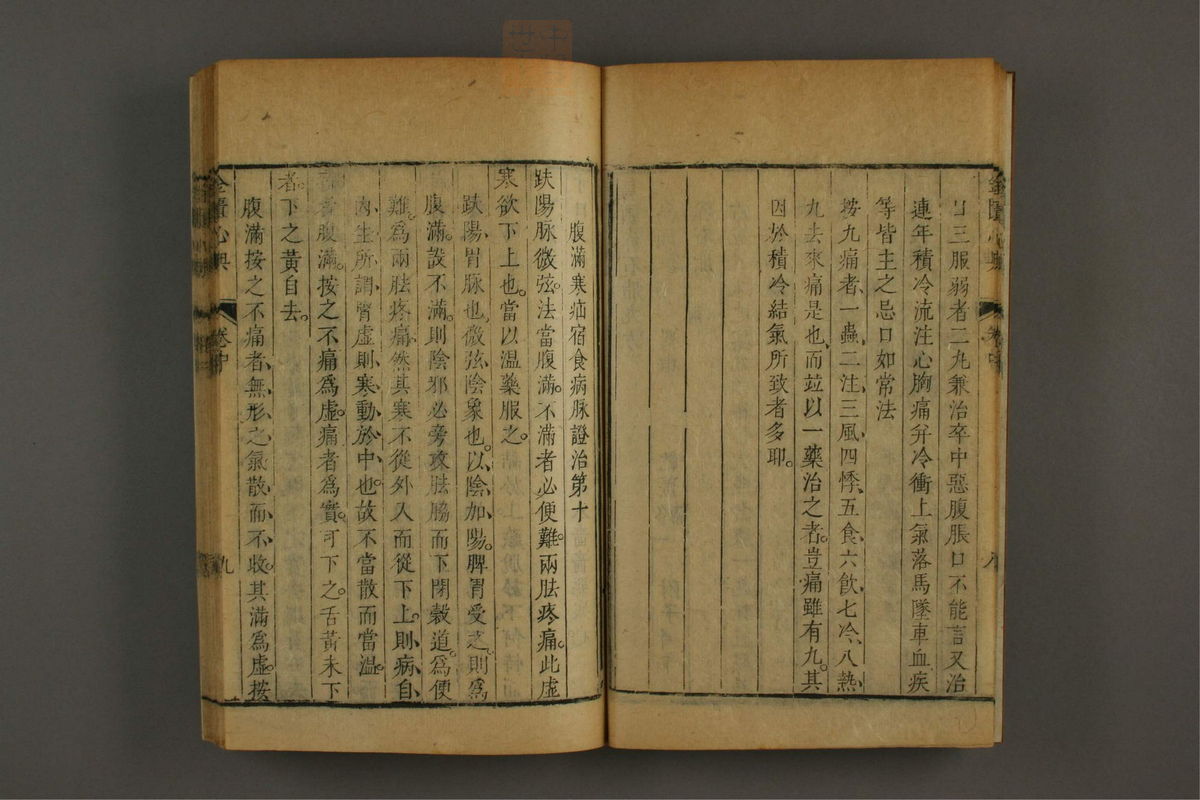 日三服弱者二丸兼治卒中惡腹脹口不能言又治
連年積冷流注心胸痛并冷衝上氣落馬墜車血疾
等皆主之忌口如常法
按九痛者、一蟲、二注、三風、四悸、五食、六飲、七冷、八熱、
九去來痛是也、而竝以一藥治之者。豈痛雖有九。其
因於積冷結氣所致者多耶。
腹滿寒疝宿食病脉證治第十
趺陽脉微弦。法當腹滿。不滿者必便難。兩胠疼痛。此虛
寒欲下上也。當以温藥服之。
趺陽、胃脉也、微弦、陰象也。以、陰加、陽。脾胃受之、則爲
腹滿。設不滿。則陰邪必旁攻胠脇而下閉穀道。爲便
難。爲兩胠疼痛。然其寒不從外入而從下上。則、病自、
内、生、所、謂、腎虛則、寒動、於、中、也。故不當散而當温。
病者腹滿。按之不痛爲虛。痛者爲實。可下之。舌黃未下
者。下之黃自去。
腹滿按之不痛者、無形、之、氣散、而、不、收。其滿爲虛。按
金匱心典
卷中
八
金匱心典
卷中
九